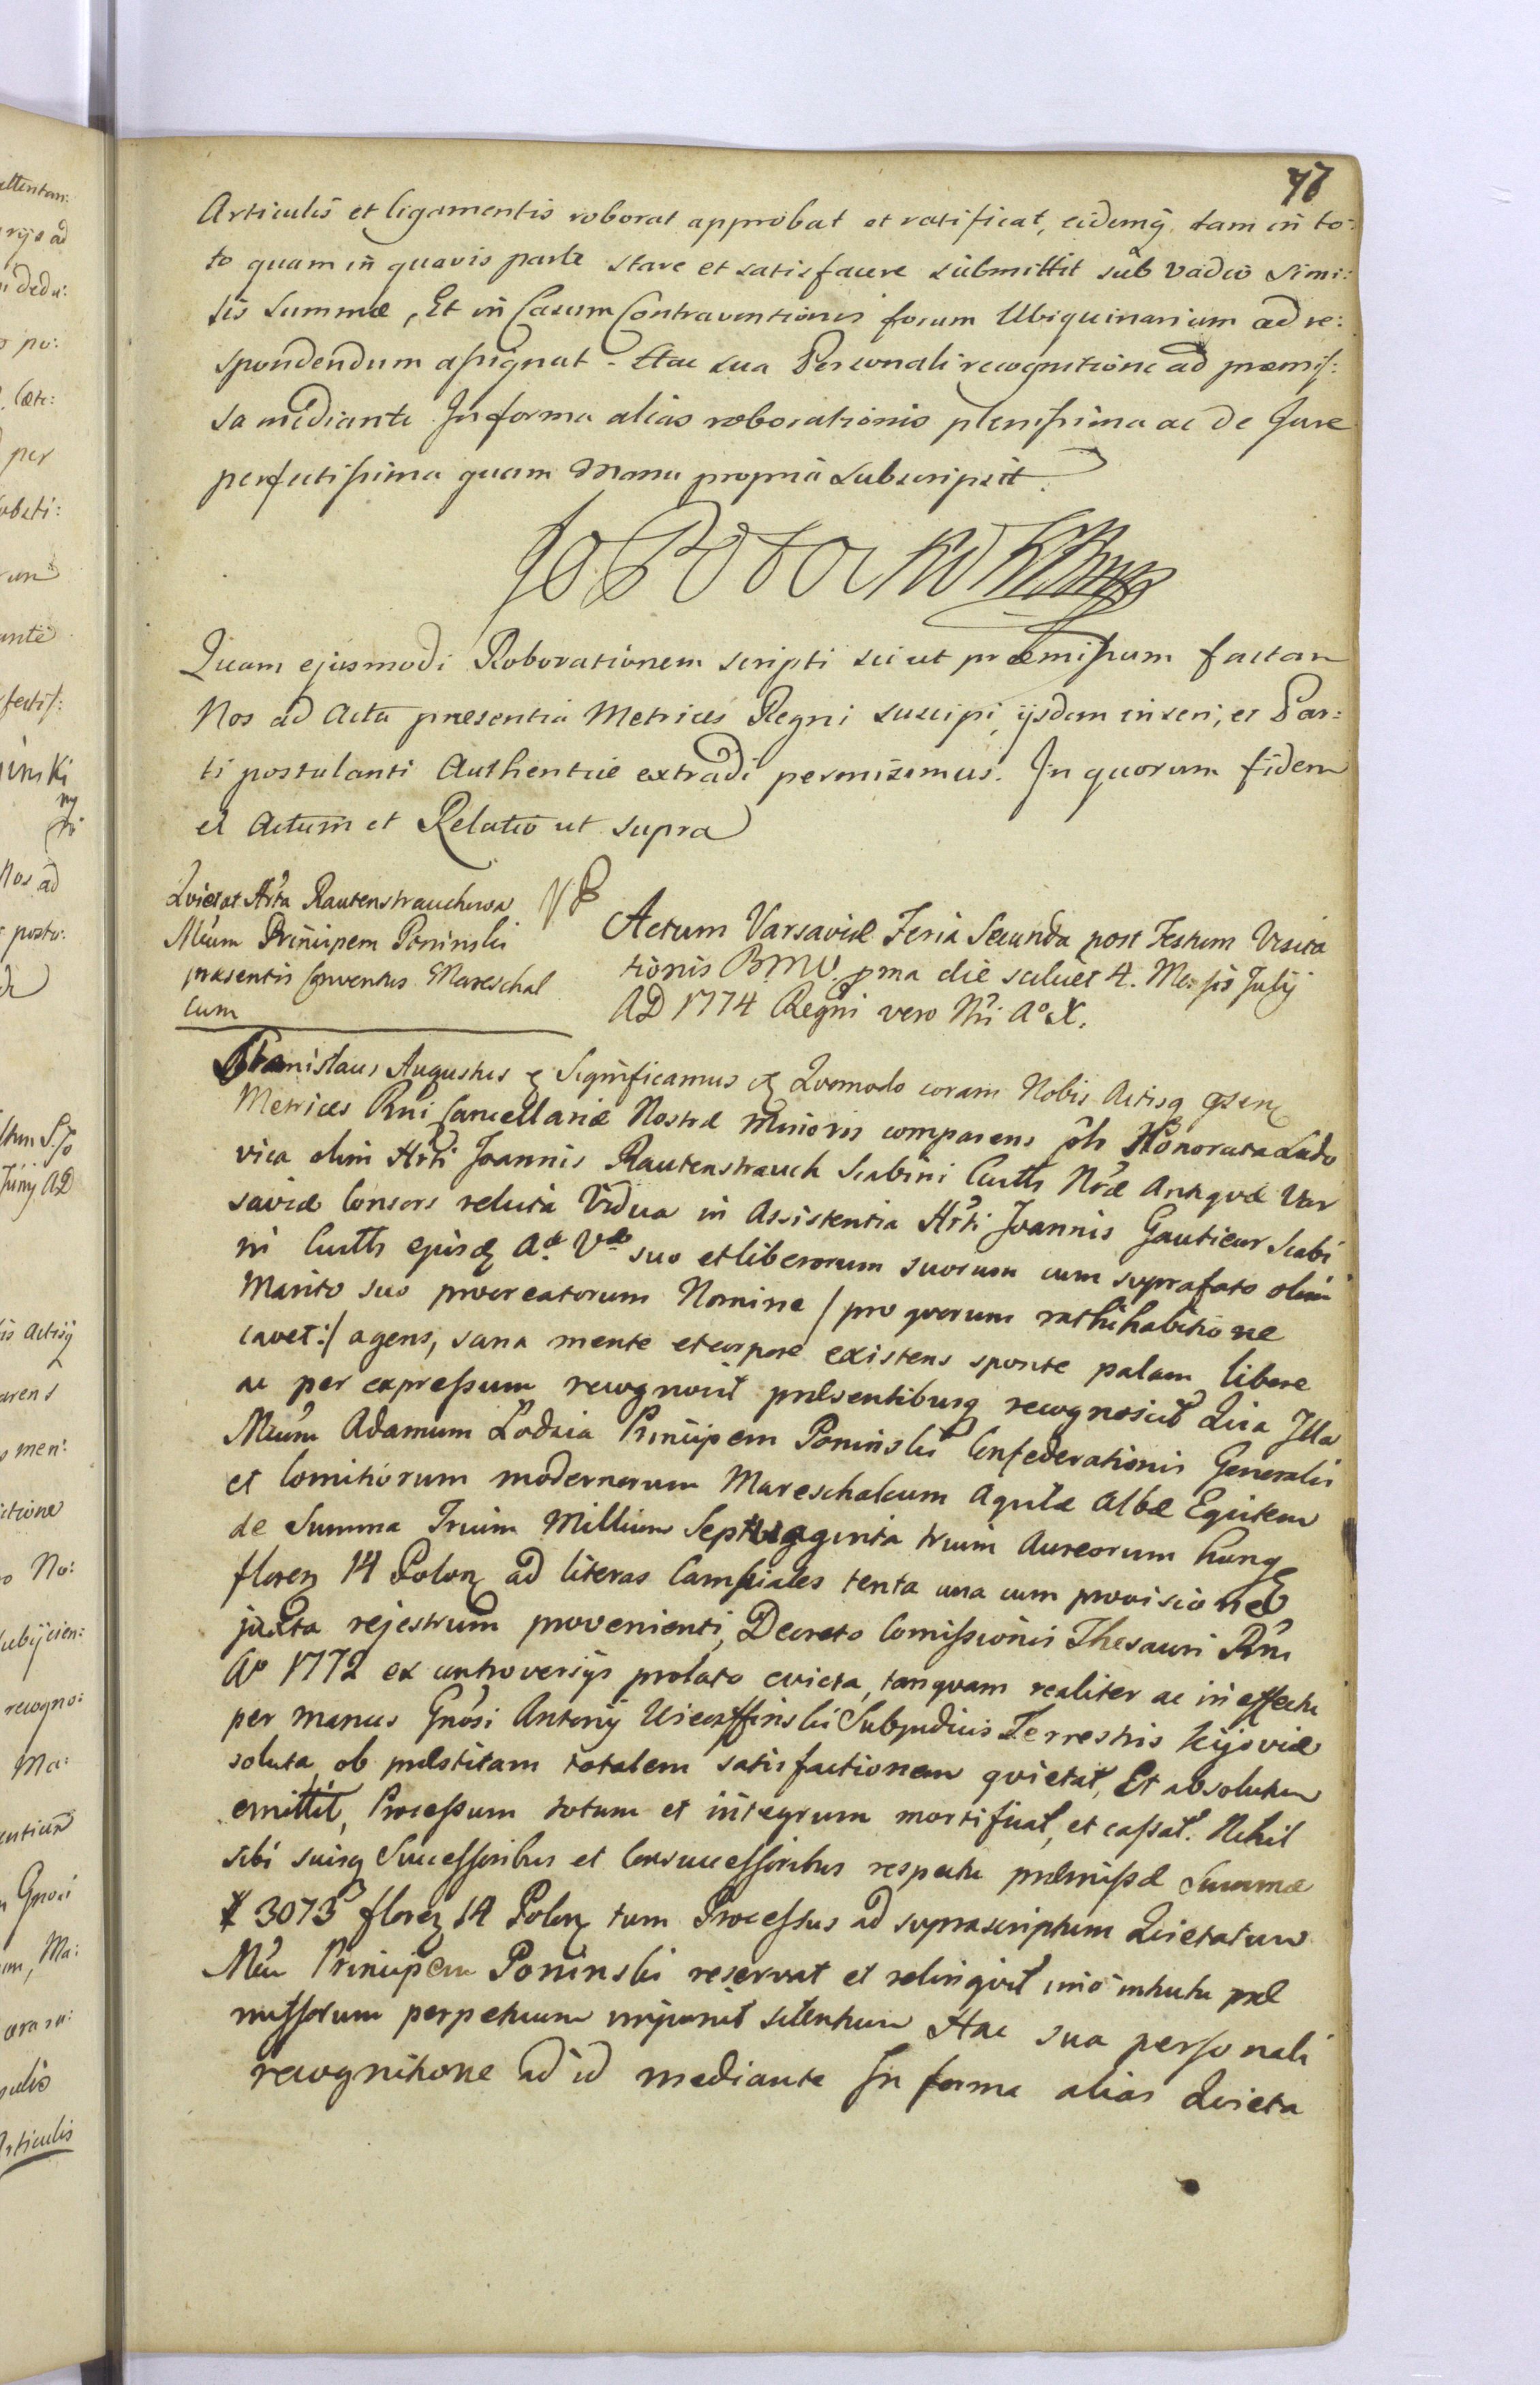 Articulis et ligamentis roborat approbat et ratificat, eidemq tam in to:
to quam in quavis parte stare et satisfacere submittit sub vadio simi:
lis Summæ, Et in Casum Contraventionis forum Ubiquinarium ad re:
spondendum assignat. Hac sua Personali recognitione ad præmis:
sa mediante In forma alias roborationis plenissima ac de Jure
perfectissima quam Manu propria Subscripsit.
Quam ejusmodi Roborationem scripti sic ut præmissum factam
Nos ad Acta præsentia Metrices Regni suscipi, ijsdem inseri, et Par:
ti postulanti Authentice extradi permisimus. In quorum fidem
et Actum et Relatio ut supra
Quietat Hrta Rautenstrauchowa
Mĩum Principem Poninski
præsentis Conventus Mareschal
cum
Actum Varsaviæ Feria Secunda post Festum Visita
tionis BMV. pma die scilicet 4. Mensis Julij
AD 1774 Regni vero Nri Aº X.
Stanislaus Augustus Significamus Quomodo coram Nobis Actisq
Metrices Rni Cancellariæ Nostræ Minoris comparens Honorata Ludo
vica olim Hrti Joannis Rautenstrauch Scabini Cuttis Nræ Antiquæ Var
saviæ Consors relicta Vidua in Assistentia Hrti Joannis Gautieur Scabi
ni Cuttis ejusd Aæ Væ suo et liberorum suorum cum suprafato olim
Marito suo procreatorum Nomine /: pro quorum rathihabitione
cavet :/ agens, sana mente et corpore existens sponte palam libere
ac per expressum recognovit præsentibusq recognoscit Quia Illa
Mium Adamum Łodzia Principem Poninski Confederationis Generalis
et Comitiorum modernorum Mareschalcum Aquilæ Albæ Equitem
de Summa Trium Millium Septuaginta trium Aureorum hung
floren 14 Polon ad literas Cambiales tenta una cum provisione
juxta rejestrum provenienti, Decreto Comissionis Thesauri Rni
Aº 1772 ex controversijs prolato evicta, tanquam realiter ac in effectu
per manus Gnosi Antonij Subjudicis Terrestris Kijoviæ
soluta, ob præstitam totalem satisfactionem quietat, Et absolutum
emittit, Processum totum et integrum mortificat, et cassat. Nihil
sibi suisq Successoribus et Consuccessoribus respectu præmissæ Summæ
# 3073 floren 14 Polon tum Processus ad suprascriptum Quietatum
Mium Principem Poninski reservat et relinquit imo intuitu præ
missorum perpetuum imponit silentium Hac sua personali
recognitione ad id mediante In forma alias Quieta